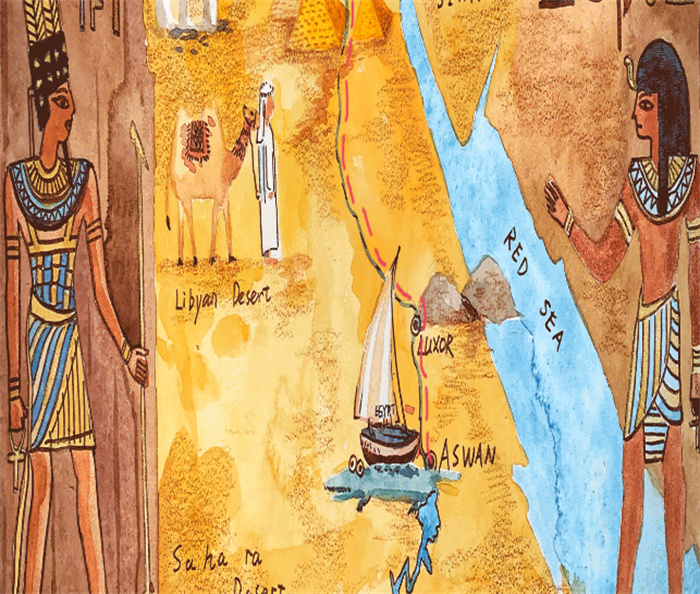 Libyan Desert
RED SEA
LUXOR
EGYPT
ASWAN
Sahara
Desert